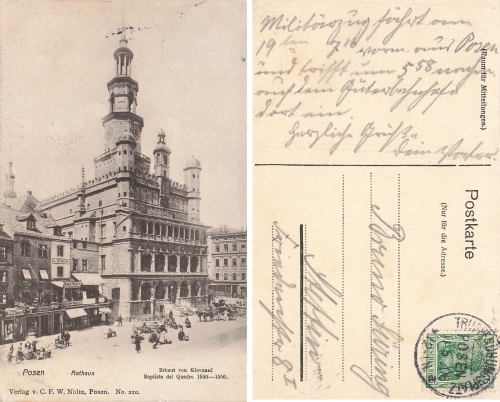 Posen
Rathaus
Erbaut von Giovanni
Baptista del Quadro 1550—1556.
Verlag v. C. F. W. Nölte, Posen. No. 210.
Militärzug fährt am
19ten 9 10 vorm. aus Posen
und trifft um 5 58 nachm
auf dem Güterbahnhofe
dort ein.
Herzliche Grüße
Dein
(Raum für Mitteilungen.)
Postkarte
(Nur für die Adresse.)
Bruno
Stettin
POSEN